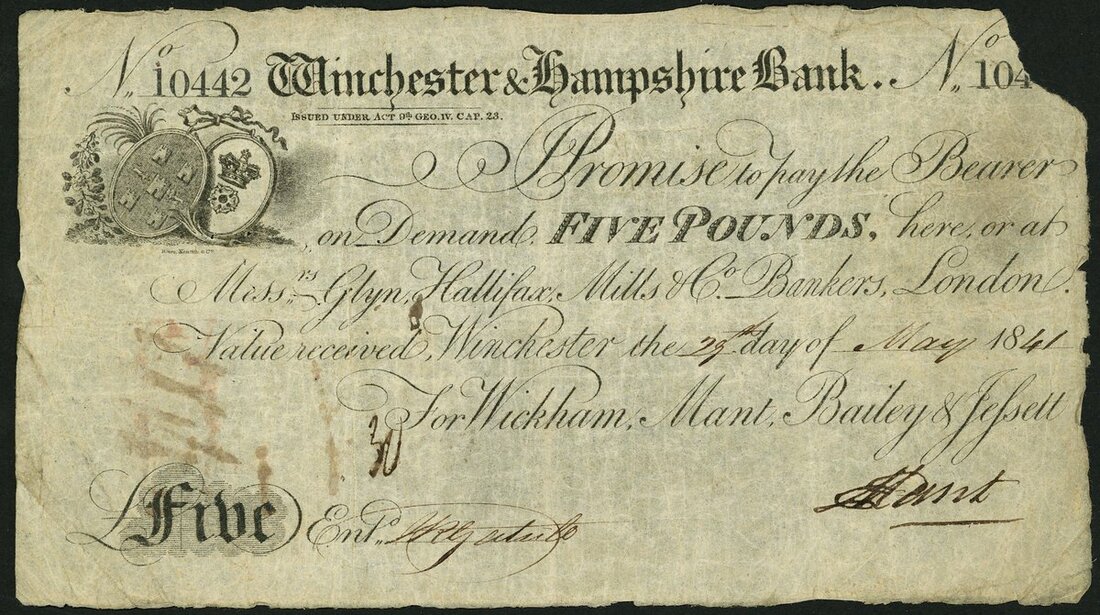 No. 10442 Winchester & Hampshire Bank. No. 104
ISSUED UNDER ACT 9th GEO. IV. CAP. 23.
I Promise to pay the Bearer
on Demand FIVE POUNDS, here, or at
Messrs. Glyn, Hallifax, Mills & Co. Bankers, London.
Value received, Winchester the 29th day of May 1841
For Wickham, Mant, Bailey & Jessett
30
Mant
£ Five Entd.